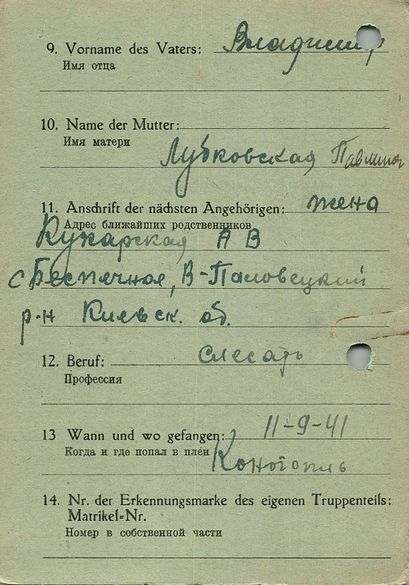 9. Vorname des Vaters: Владимир
Имя отца
10. Name der Mutter:
Имя матери
Лубковская Павлина
11. Anschrift der nächsten Angehörigen: жена
Адрес ближайших родственников
Кухарская А В
с Беспечное, В-Половецкий
р-н Киевск. об.
12. Beruf: слесарь
Профессия
13 Wann und wo gefangen: 11-9-41
Когда и где попал в плен Конотопль
14. Nr. der Erkennungsmarke des eigenen Truppenteils:
Matrikel-Nr.
Номер в собственной части